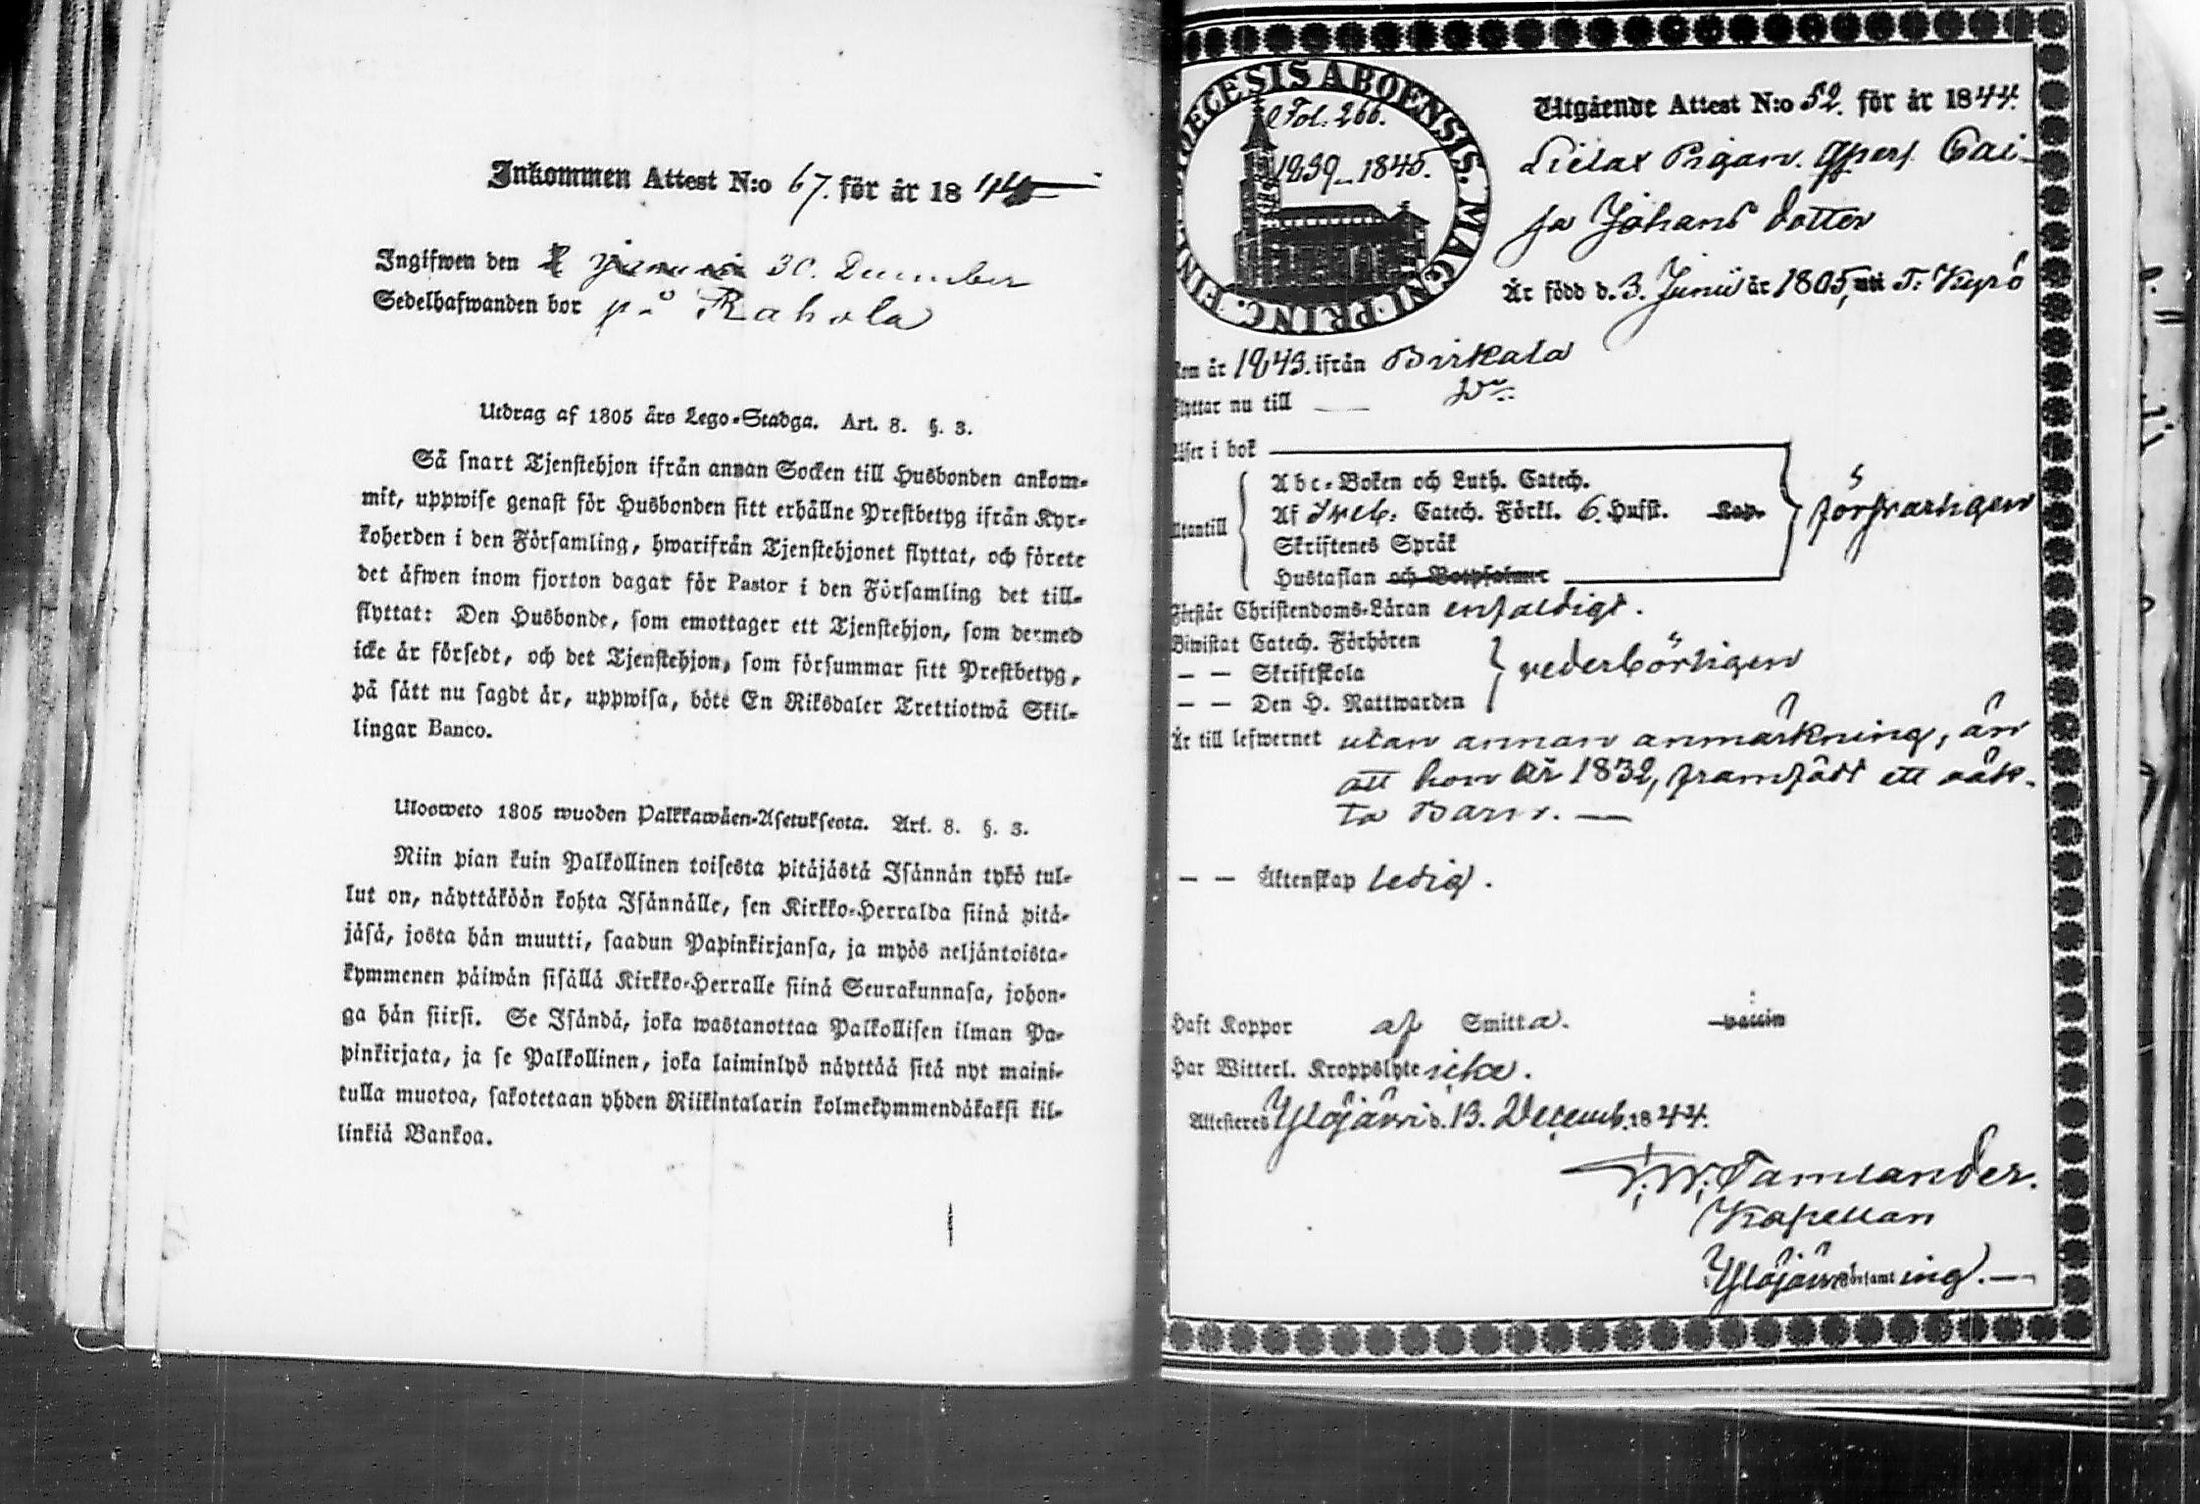 Inkommen Attest N:o 67. för år 1844
Ingifwen den 30. December
Sedelhafwanden bor på Rahola
Utdrag af 1805 års Lego-Stadga. Art. 8. §. 3.
Så snart Tjenstehjon ifrån annan Socken till Husbonden ankom-
mit, uppwise genast för Husbonden sitt erhållne Prestbetyg ifrån Kyr-
koherden i den Församling, hwarifrån Tjenstehjonet flyttat, och förete
det äfwen inom fjorton dagar för Pastor i den Församling det till-
flyttat: Den Husbonde, som emottager ett Tjenstehjon, som dermed
icke är försedt, och det Tjenstehjon, som försummar sitt Prestbetyg,
på sätt nu sagdt är, uppwisa, böte En Riksdaler Trettiotwå Skil-
lingar Banco.
Ulosweto 1805 wuoden Palkkawäen-Asetuksesta. Art. 8. §. 3.
Niin pian kuin Palkollinen toisesta pitäjästä Isännän tykö tul-
lut on, näyttäköön kohta Isännälle, sen Kirkko-Herralda siinä pitä-
jäsä, josta hän muutti, saadun Papinkirjansa, ja myös neljäntoista-
kymmenen päiwän sisällä Kirkko-Herralle siinä Seurakunnasa, johon-
ga hän siirsi. Se Isändä, joka wastanottaa Palkollisen ilman Pa-
pinkirjata, ja se Palkollinen, joka laiminlyö näyttää sitä nyt maini-
tulla muotoa, sakotetaan yhden Riikintalarin kolmekymmendäkaksi kil-
linkiä Bankoa.
DIOECESIS ABOENSIS. MAGNI PRINC. FINL.
Fol: 266.
1839-1845.
Utgående Attest N:o 52. för år 1844.
Pigan Cai-
sa Johans dotter
Är född d. 3. Junii år 1805, T. Kyrö
Kom år 1843. ifrån Birkala
Flyttar nu till
Läser i bok
Utantill
Abc-Boken och Luth. Catech.
Af Sveb: Catech. Förkl. 6. Hufst. Kap.
Skriftenes Språk
Hustaflan och Botpsalmer
försvarligen
Förstår Christendoms-Läran enfaldigt.
Biwistat Catech. Förhören
— — Skriftskola
— — Den H. Nattwarden
vederbörligen
Är till lefwernet utan annan anmärkning, än
att hon år 1832, framfödt ett oäk-
ta Barn. —
— — Äktenskap ledig.
Haft Koppor af Smitta. vaccin
Har Witterl. Kroppslyte icke.
Attesteres Ylöjärvi d. 13. Decemb. 1844.
Tamlander.
Kapellan
Ylöjärvi Församling. —